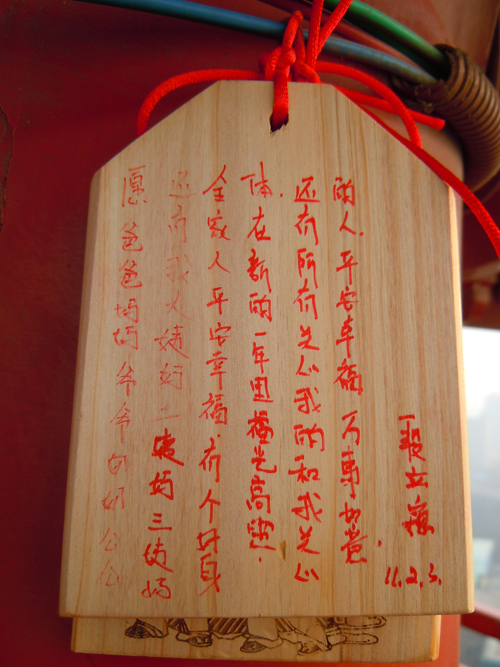 愿爸爸妈妈爷爷奶奶公公
还有我大姨妈二姨妈三姨妈
全家人平安幸福.有个好身
体.在新的一年里福光高照.
还有所有关心我的和我关心
的人.平安幸福 万事如意.
11.2.3.